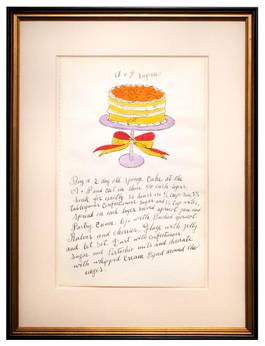 A + P Supreme
Buy a 2 day old sponge cake at the
A + P and cut in three the each layer
soak for exactly 10 hours in ½ cup rum 3½
tablespoons confectioners sugar and ½ cup milk,
spread on each layer sieved apricot jam and
Pastry Creme top with Baked apricot
Halves and cherries. Glaze with jelly
and let set. Dust with confectioners
sugar and Pistachio nuts and decorate
with whipped cream Piped around the
edges.